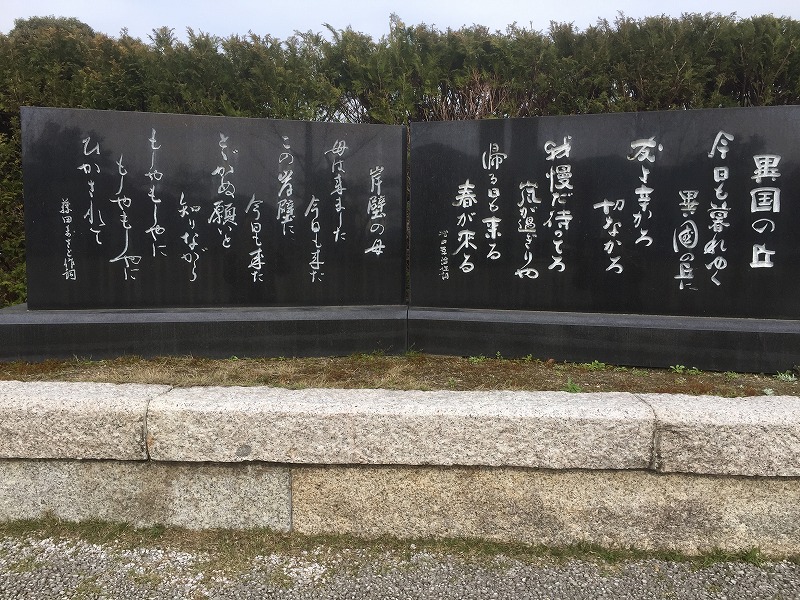 異国の丘
今日も暮れゆく
異国の丘に
友よ辛かろ
切なかろ
我慢だ待ってろ
嵐が過ぎりゃ
帰る日も来る
春が来る
増田幸治作詞
岸壁の母
母は来ました
今日も来た
この岸壁に
今日も来た
とゞかぬ願と
知りながら
もしやもしやに
もしやもしやに
ひかされて
藤田まさと作詞